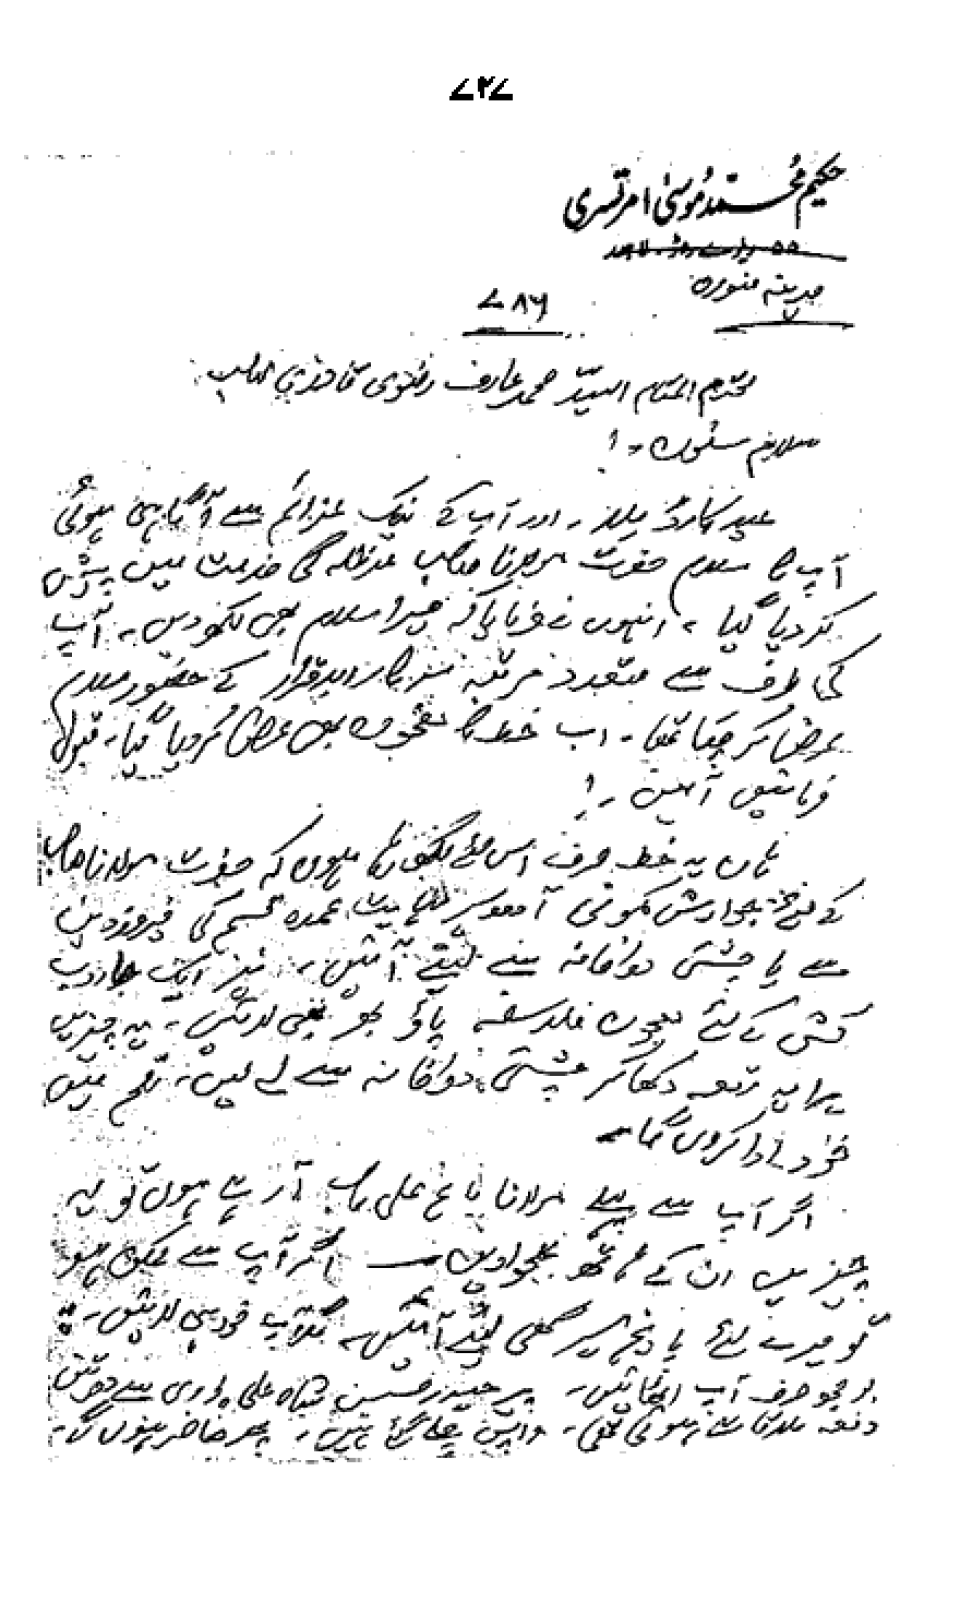 ۷۲۷
حکیم محمد موسیٰ امرتسری
۵۵ ریلوے روڈ۔ لاہور
مدینہ منورہ
۷۸۶
محترم المقام السید محمد عارف رضوی قادری صاحب
سلام مسنون۔!
عید کارڈ ملا۔ اور آپ کے نیک عزائم سے آگاہی ہوئی
آپ کا سلام حضرت مولانا صاحب مدظلہ کی خدمت میں پیش
کر دیا گیا۔ انہوں نے فرمایا کہ میرا سلام بھی لکھ دیں۔ آپ
کی طرف سے متعدد مرتبہ سرکار ابد قرار کے حضور سلام
عرض کر چکا تھا۔ اب خط کا بھی عرض کر دیا گیا۔ قبول
فرمائیں آمین۔!
ہاں یہ خط صرف اس لئے لکھ رہا ہوں کہ حضرت مولانا صاحب
کے لئے جوارش کمونی آدھ سیر نہایت عمدہ قسم کی
سے یا چشتی دواخانہ سے لیتے آئیں۔ نیز ایک جاروب
کش کے لئے معجون فلاسفہ پاؤ بھر بھی لائیں۔ یہ چیزیں
میرا یہ رقعہ دکھا کر چشتی دواخانہ سے لے لیں۔ رقم میں
خود ادا کروں گا۔
اگر آپ سے پہلے مولانا باغ علی صاحب آ رہے ہوں تو یہ
چیزیں ان کے ہاتھ بھجوا دیں۔ اگر آپ سے ممکن ہو
تو میرے لئے پانچ سیر گھی لیتے آئیں۔ آپ خود ہی لائیں۔
بوجھ صرف آپ اٹھائیں۔ پیر حیدر حسین شاہ علی پوری سے دو تین
دفعہ ملاقات ہوئی تھی۔ واپس چلے گئے ہیں۔ پھر حاضر ہوں گے۔